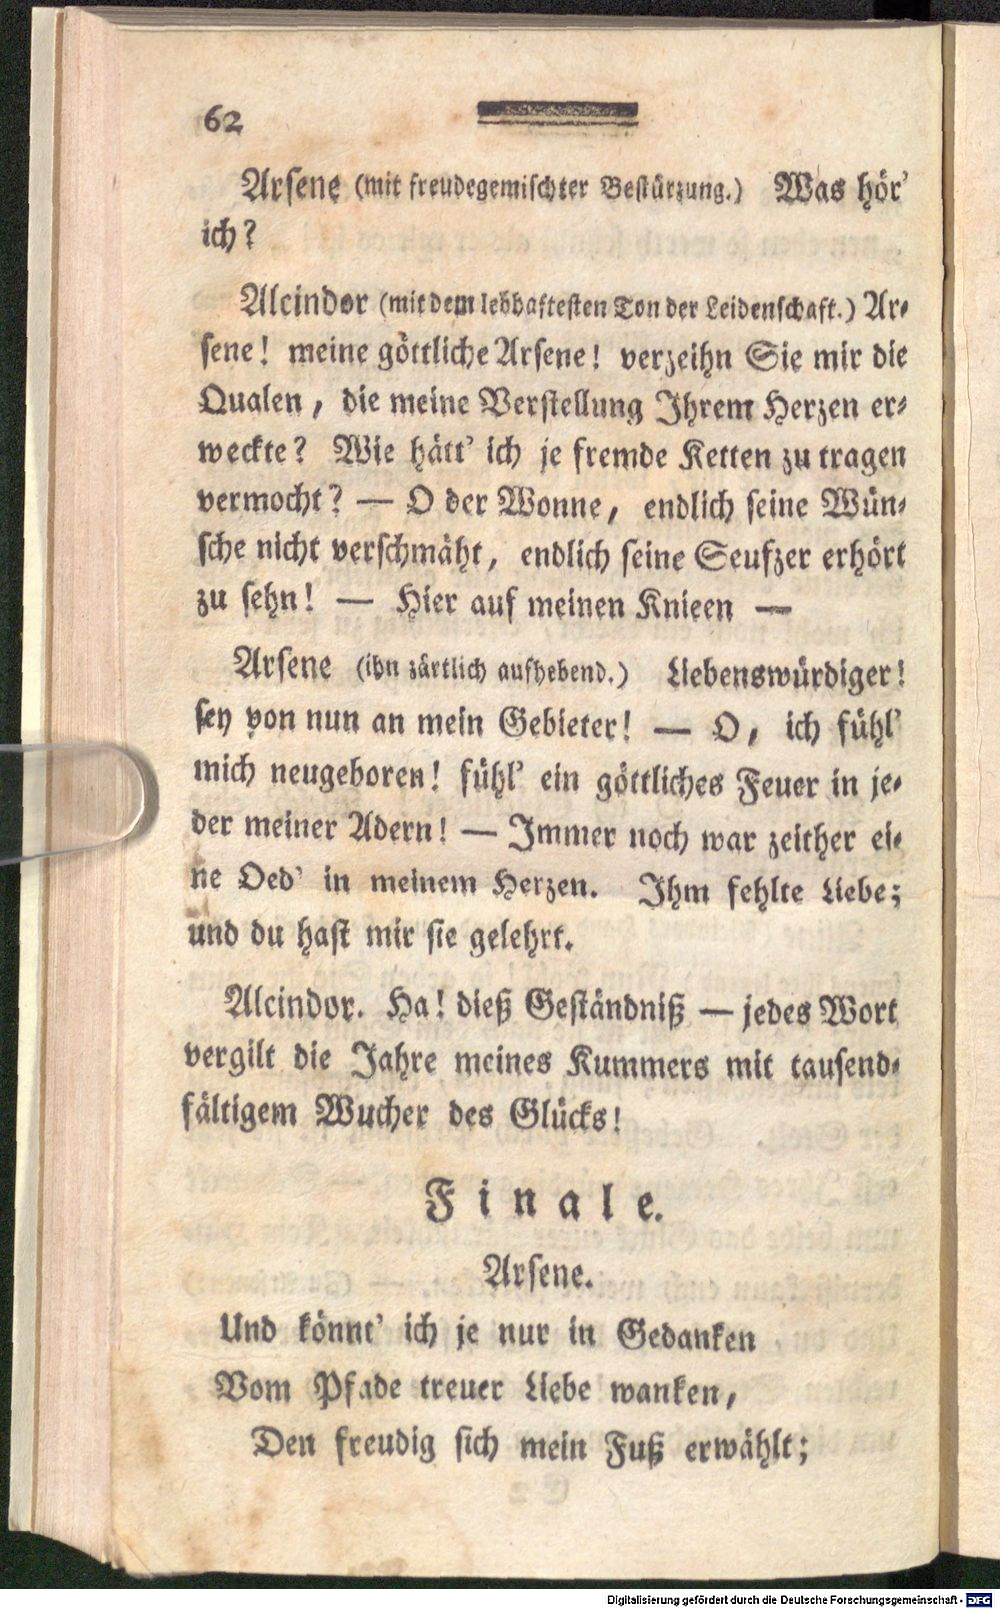 62
Arsene (mit freudegemischter Bestürzung.) Was hör'
ich?
Alcindor (mit dem lebhaftesten Ton der Leidenschaft.) Ar-
sene! meine göttliche Arsene! verzeihn Sie mir die
Qualen, die meine Verstellung Ihrem Herzen er-
weckte? Wie hätt' ich je fremde Ketten zu tragen
vermocht? — O der Wonne, endlich seine Wün-
sche nicht verschmäht, endlich seine Seufzer erhört
zu sehn! — Hier auf meinen Knieen —
Arsene (ihn zärtlich aufhebend.) Liebenswürdiger!
sey von nun an mein Gebieter! — O, ich fühl'
mich neugeboren! fühl' ein göttliches Feuer in je-
der meiner Adern! — Immer noch war zeither ei-
ne Oed' in meinem Herzen. Ihm fehlte Liebe;
und du hast mir sie gelehrt.
Alcindor. Ha! dieß Geständniß — jedes Wort
vergilt die Jahre meines Kummers mit tausend-
fältigem Wucher des Glücks!
Finale.
Arsene.
Und könnt' ich je nur in Gedanken
Vom Pfade treuer Liebe wanken,
Den freudig sich mein Fuß erwählt;
Digitalisierung gefördert durch die Deutsche Forschungsgemeinschaft - DFG